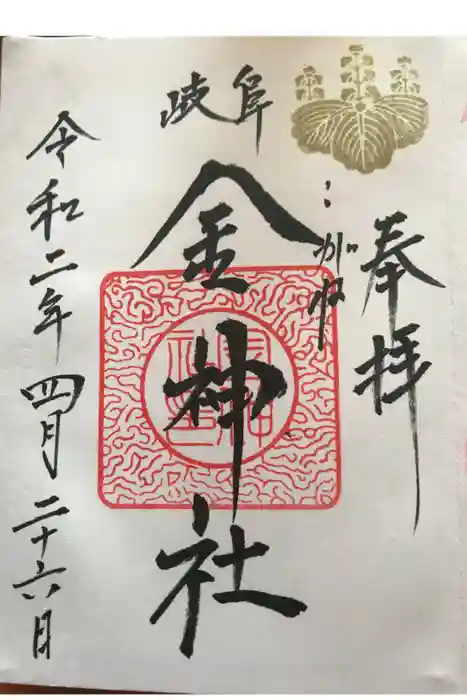 奉拝
岐阜
金神社
令和二年四月二十六日